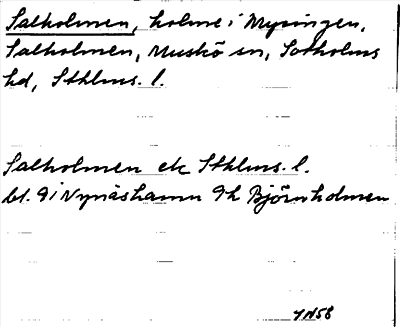 Salholmen, holme i Mysingen,
Salholmen, Muskö sn, Sotholms
hd, Sthlms. l.
Salholmen ek Sthlms. l.
bl. 9 i Nynäshamn 9h Björnholmen